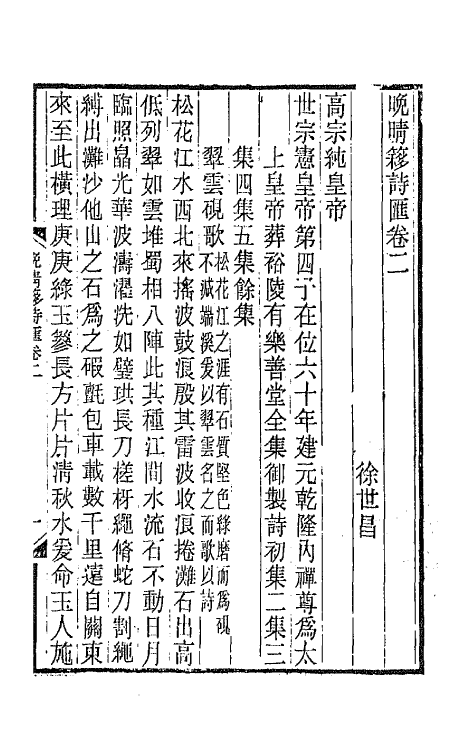 晩晴簃詩匯卷二
徐世昌
高宗純皇帝
世宗憲皇帝第四子在位六十年建元乾隆内禪尊爲太
上皇帝葬裕陵有樂善堂全集御製詩初集二集三
集四集五集餘集
翠雲硯歌松花江之涯有石質堅色綠磨而爲硯
不減端溪爰以翠雲名之而歌以詩
松花江水西北來搖波鼓浪殷其雷波收浪捲灘石出高
低列翠如雲堆蜀相八陣此其種江間水流石不動日月
臨照晶光華波濤濯洗如璧珙長刀槎枒繩脩蛇刀割繩
縛出灘沙他山之石爲之瑕氈包車載數千里遠自關東
來至此橫理庚庚綠玉篸長方片片清秋水爰命玉人施
晩晴簃詩匯卷二
一